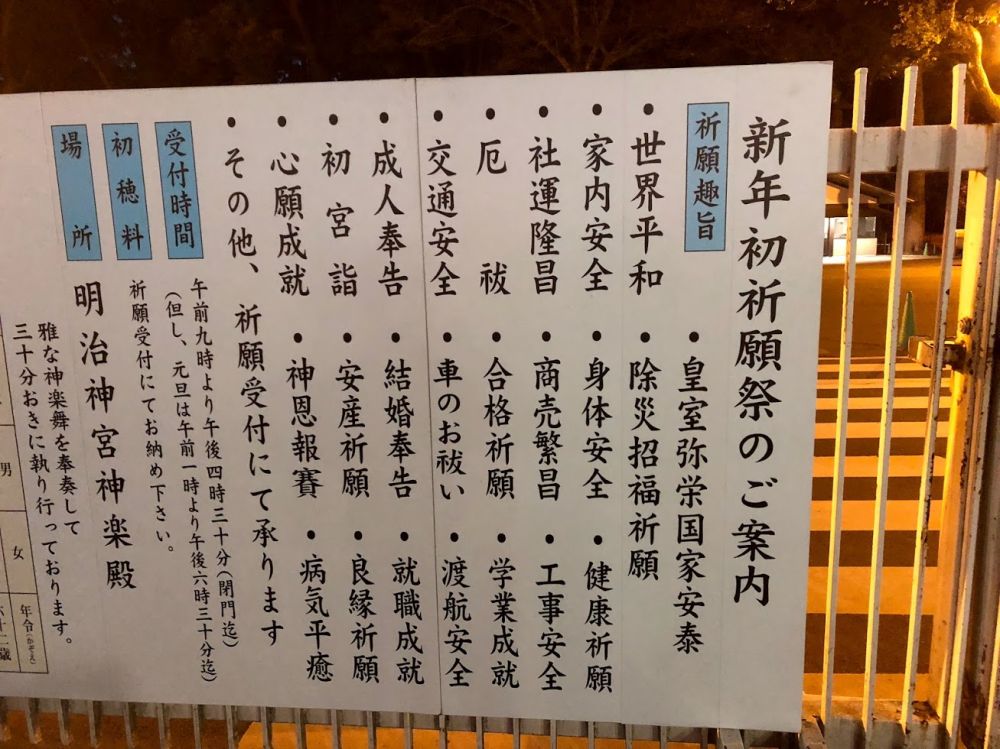 新年初祈願祭のご案内
祈願趣旨
・皇室弥栄国家安泰
・世界平和 ・除災招福祈願
・家内安全 ・身体安全 ・健康祈願
・社運隆昌 ・商売繁昌 ・工事安全
・厄祓 ・合格祈願 ・学業成就
・交通安全 ・車のお祓い ・渡航安全
・成人奉告 ・結婚奉告 ・就職成就
・初宮詣 ・安産祈願 ・良縁祈願
・心願成就 ・神恩報賽 ・病気平癒
・その他、祈願受付にて承ります
受付時間 午前九時より午後四時三十分(閉門迄)
(但し、元旦は午前一時より午後六時三十分迄)
初穂料 祈願受付にてお納め下さい。
場所 明治神宮神楽殿
雅な神楽舞を奉奏して
三十分おきに執り行っております。
男
女
年令(かぞえ)
六十二歳